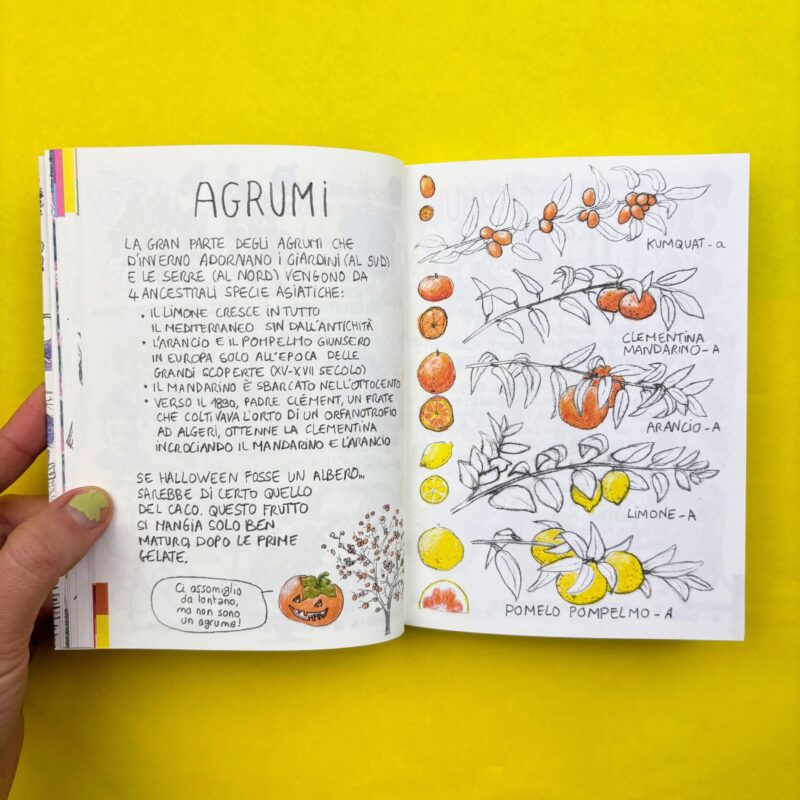 AGRUMI
LA GRAN PARTE DEGLI AGRUMI CHE
D'INVERNO ADORNANO I GIARDINI (AL SUD)
E LE SERRE (AL NORD) VENGONO DA
4 ANCESTRALI SPECIE ASIATICHE:
• IL LIMONE CRESCE IN TUTTO
IL MEDITERRANEO SIN DALL'ANTICHITÀ
• L'ARANCIO E IL POMPELMO GIUNSERO
IN EUROPA SOLO ALL'EPOCA DELLE
GRANDI SCOPERTE (XV-XVII SECOLO)
• IL MANDARINO È SBARCATO NELL'OTTOCENTO
• VERSO IL 1890, PADRE CLÉMENT, UN FRATE
CHE COLTIVAVA L'ORTO DI UN ORFANOTROFIO
AD ALGERI, OTTENNE LA CLEMENTINA
INCROCIANDO IL MANDARINO E L'ARANCIO
SE HALLOWEEN FOSSE UN ALBERO...
SAREBBE DI CERTO QUELLO
DEL CACO. QUESTO FRUTTO
SI MANGIA SOLO BEN
MATURO, DOPO LE PRIME
GELATE.
Ci assomiglio
da lontano,
ma non sono
un agrume!
KUMQUAT-a
CLEMENTINA
MANDARINO-A
ARANCIO-A
LIMONE-A
POMELO POMPELMO-A